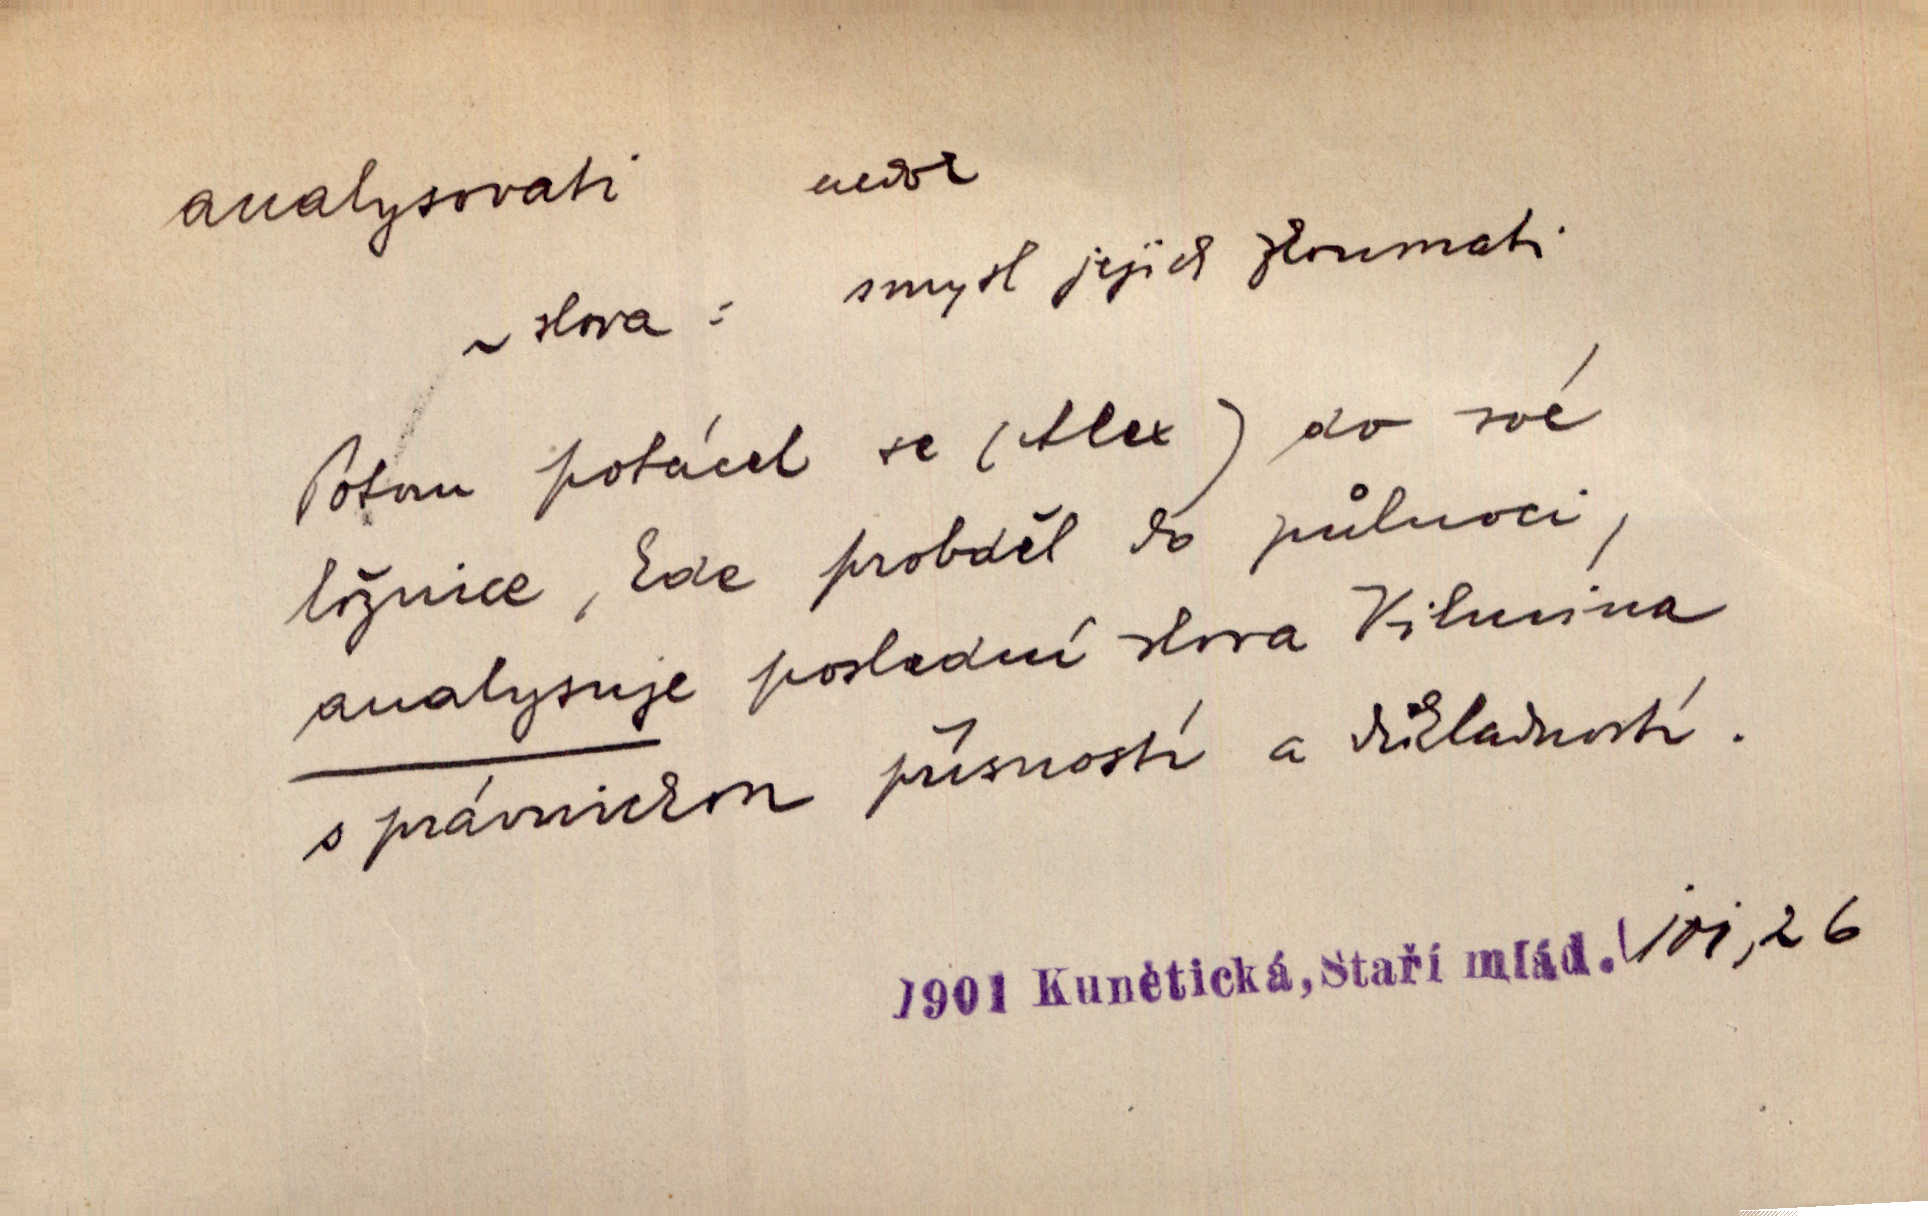 analysovati nedok
~ slova = smysl jejich zkoumati
Potom potácel se (Alex) do své
ložnice, kde probděl do půlnoci,
analysuje poslední slova Vilmina
s právnickou přísností a důkladností.
1901 Kunětická, Staří mlád. 26